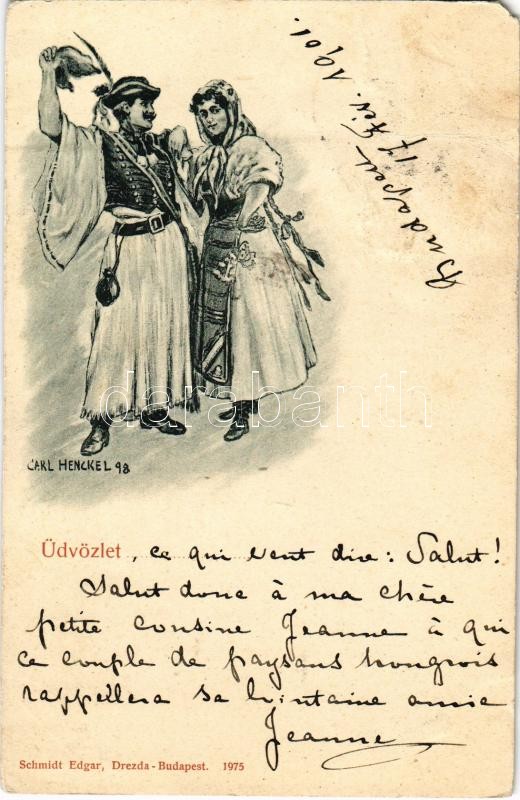 Budapest
17 Fév. 1901.
CARL HENCKEL 98
darabanth
Üdvözlet, ce qui veut dire: Salut!
Salut donc à ma chère
petite cousine Jeanne à qui
ce couple de paysans hongrois
rappellera sa lointaine amie
Jeanne
Schmidt Edgar, Drezda-Budapest. 1975